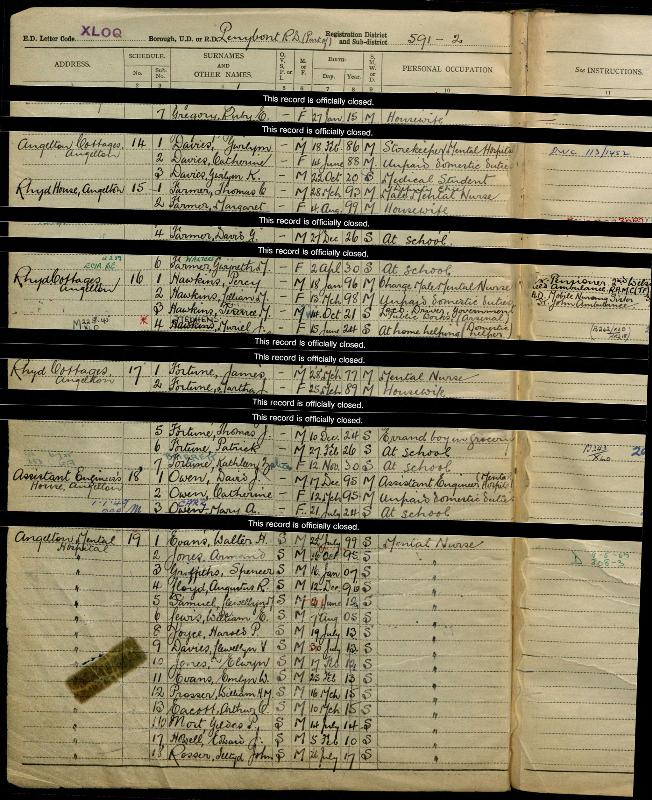 XLOQ
E.D. Letter Code Borough, U.D. or R.D. Penybont R.D. (Part of) Registration District and Sub-district 591-2
ADDRESS. SCHEDULE. No. Sub. No. SURNAMES AND OTHER NAMES. O.V.S.P. or I. M. or F. BIRTH— Day. Year. S.M.W. or D. PERSONAL OCCUPATION See INSTRUCTIONS.
2 3 5 6 7 8 9 10 11
This record is officially closed.
7 Gregory, Ruby E. – F 27 Jan 15 M Housewife
This record is officially closed.
Angelton Cottages, Angelton 14 1 Davies, Gwilym – M 18 Feb 86 M Storekeeper Mental Hospital
2 Davies, Catherine – F 14 June 88 M Unpaid Domestic Duties
3 Davies, Gwilym K. – M 22 Oct 20 S Medical Student
Rhyd House, Angelton 15 1 Farmer, Thomas C – M 28 Mch 93 M Male Mental Nurse
2 Farmer, Margaret – F 4 Aug 99 M Housewife
This record is officially closed.
4 Farmer, David G. – M 27 Dec 26 S At school
This record is officially closed.
6 Farmer, Gwyneth – F 2 Apl 30 S At school
Rhyd Cottages, Angelton 16 1 Hawkins, Percy – M 18 Jan 96 M Charge Male Mental Nurse
2 Hawkins, – F Mch 98 M Unpaid Domestic Duties
3 Hawkins, Terence – M Oct 21 S Driver, Government Public Works (Arsenal)
4 Hawkins, Muriel J. – F 15 June 24 S At home helping (Domestic helper)
Pensioner
Ambulance R.A.M.C. (TF)
Mobile Nursing Sister
St. John Ambulance
This record is officially closed.
This record is officially closed.
Rhyd Cottages, Angelton 17 1 Fortune, James – M 28 Mch 77 M Mental Nurse
2 Fortune, Martha – F 25 Mch 89 M Housewife
This record is officially closed.
This record is officially closed.
5 Fortune, Thomas J. – M 10 Dec 24 S Errand boy in Grocery
6 Fortune, Patrick – M 27 Feb 26 S At school
7 Fortune, Kathleen – F 12 Nov 30 S At school
Assistant Engineer's House, Angelton 18 1 Owen, David J. – M 17 Dec 95 M Assistant Engineer (Mental Hospital)
2 Owen, Catherine – F 12 Mch 95 M Unpaid Domestic Duties
3 Owen, Mary A. – F 21 July 24 S At school
This record is officially closed.
Angelton Mental Hospital 19 1 Evans, Walter H. S M 22 July 99 S Mental Nurse
" 2 Jones, Armand S M 16 Oct 95 S "
" 3 Griffiths, Spencer S M 16 Jan 07 S "
" 4 Lloyd, Augustus R. S M 12 Dec 96 S "
" 5 Samuel, Llewellyn S M June 12 S "
" 6 Lewis, William C. S M 7 Aug 05 S "
" 8 Joyce, Harold P. S M 19 July 13 S "
" 9 Davies, Llewellyn V S M 30 July 12 S "
" 10 Jones, Elwyn S M 17 Feb 14 S "
" 11 Evans, Emlyn W. S M 25 Feb 13 S "
" 12 Prosser, William H.M. S M 16 Mch 15 S "
" 13 Cacott, Arthur C. S M 10 Mch 15 S "
" Mort, Gildas P. S M 14 July 14 S "
" 17 Howell, Edward J. S M 5 Feb 10 S "
" 18 Rosser, Illtyd John S M 26 July 17 S "